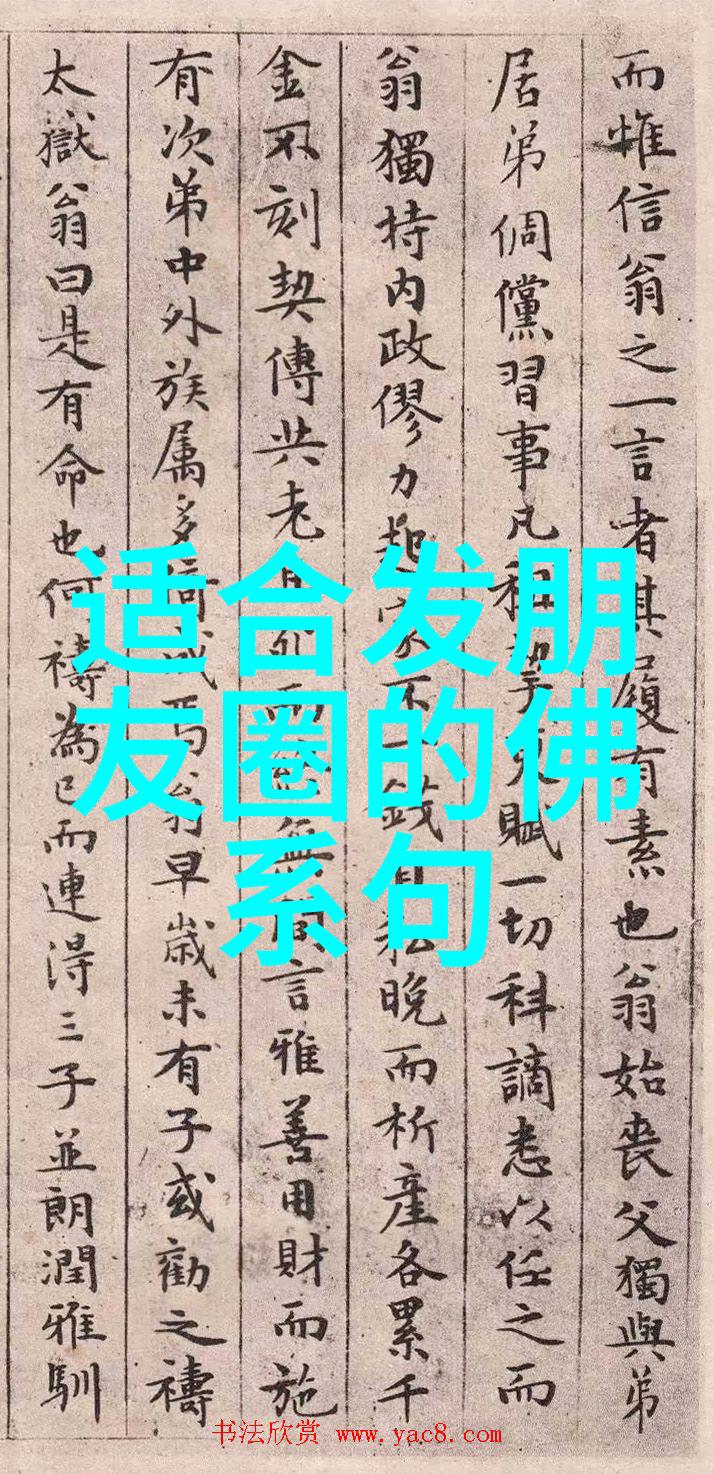 而惟信翁之一言者其履有素也翁始丧父獨與弟
居弟倜儻習事凡租挈束賦一切科謫悉以任之而
翁獨持内政僇力起家不一錢自私晚而析産各累千
金不刻契傳共老
而
無間言雅善用財而施
有次第中外族属多倚成焉翁早歲未有子或勸之禱
太嶽翁曰是有命也何禱為已而連得三子並朗潤雅馴
适合发朋
友圈的佛
系句
书法欣赏 www.yac8.com